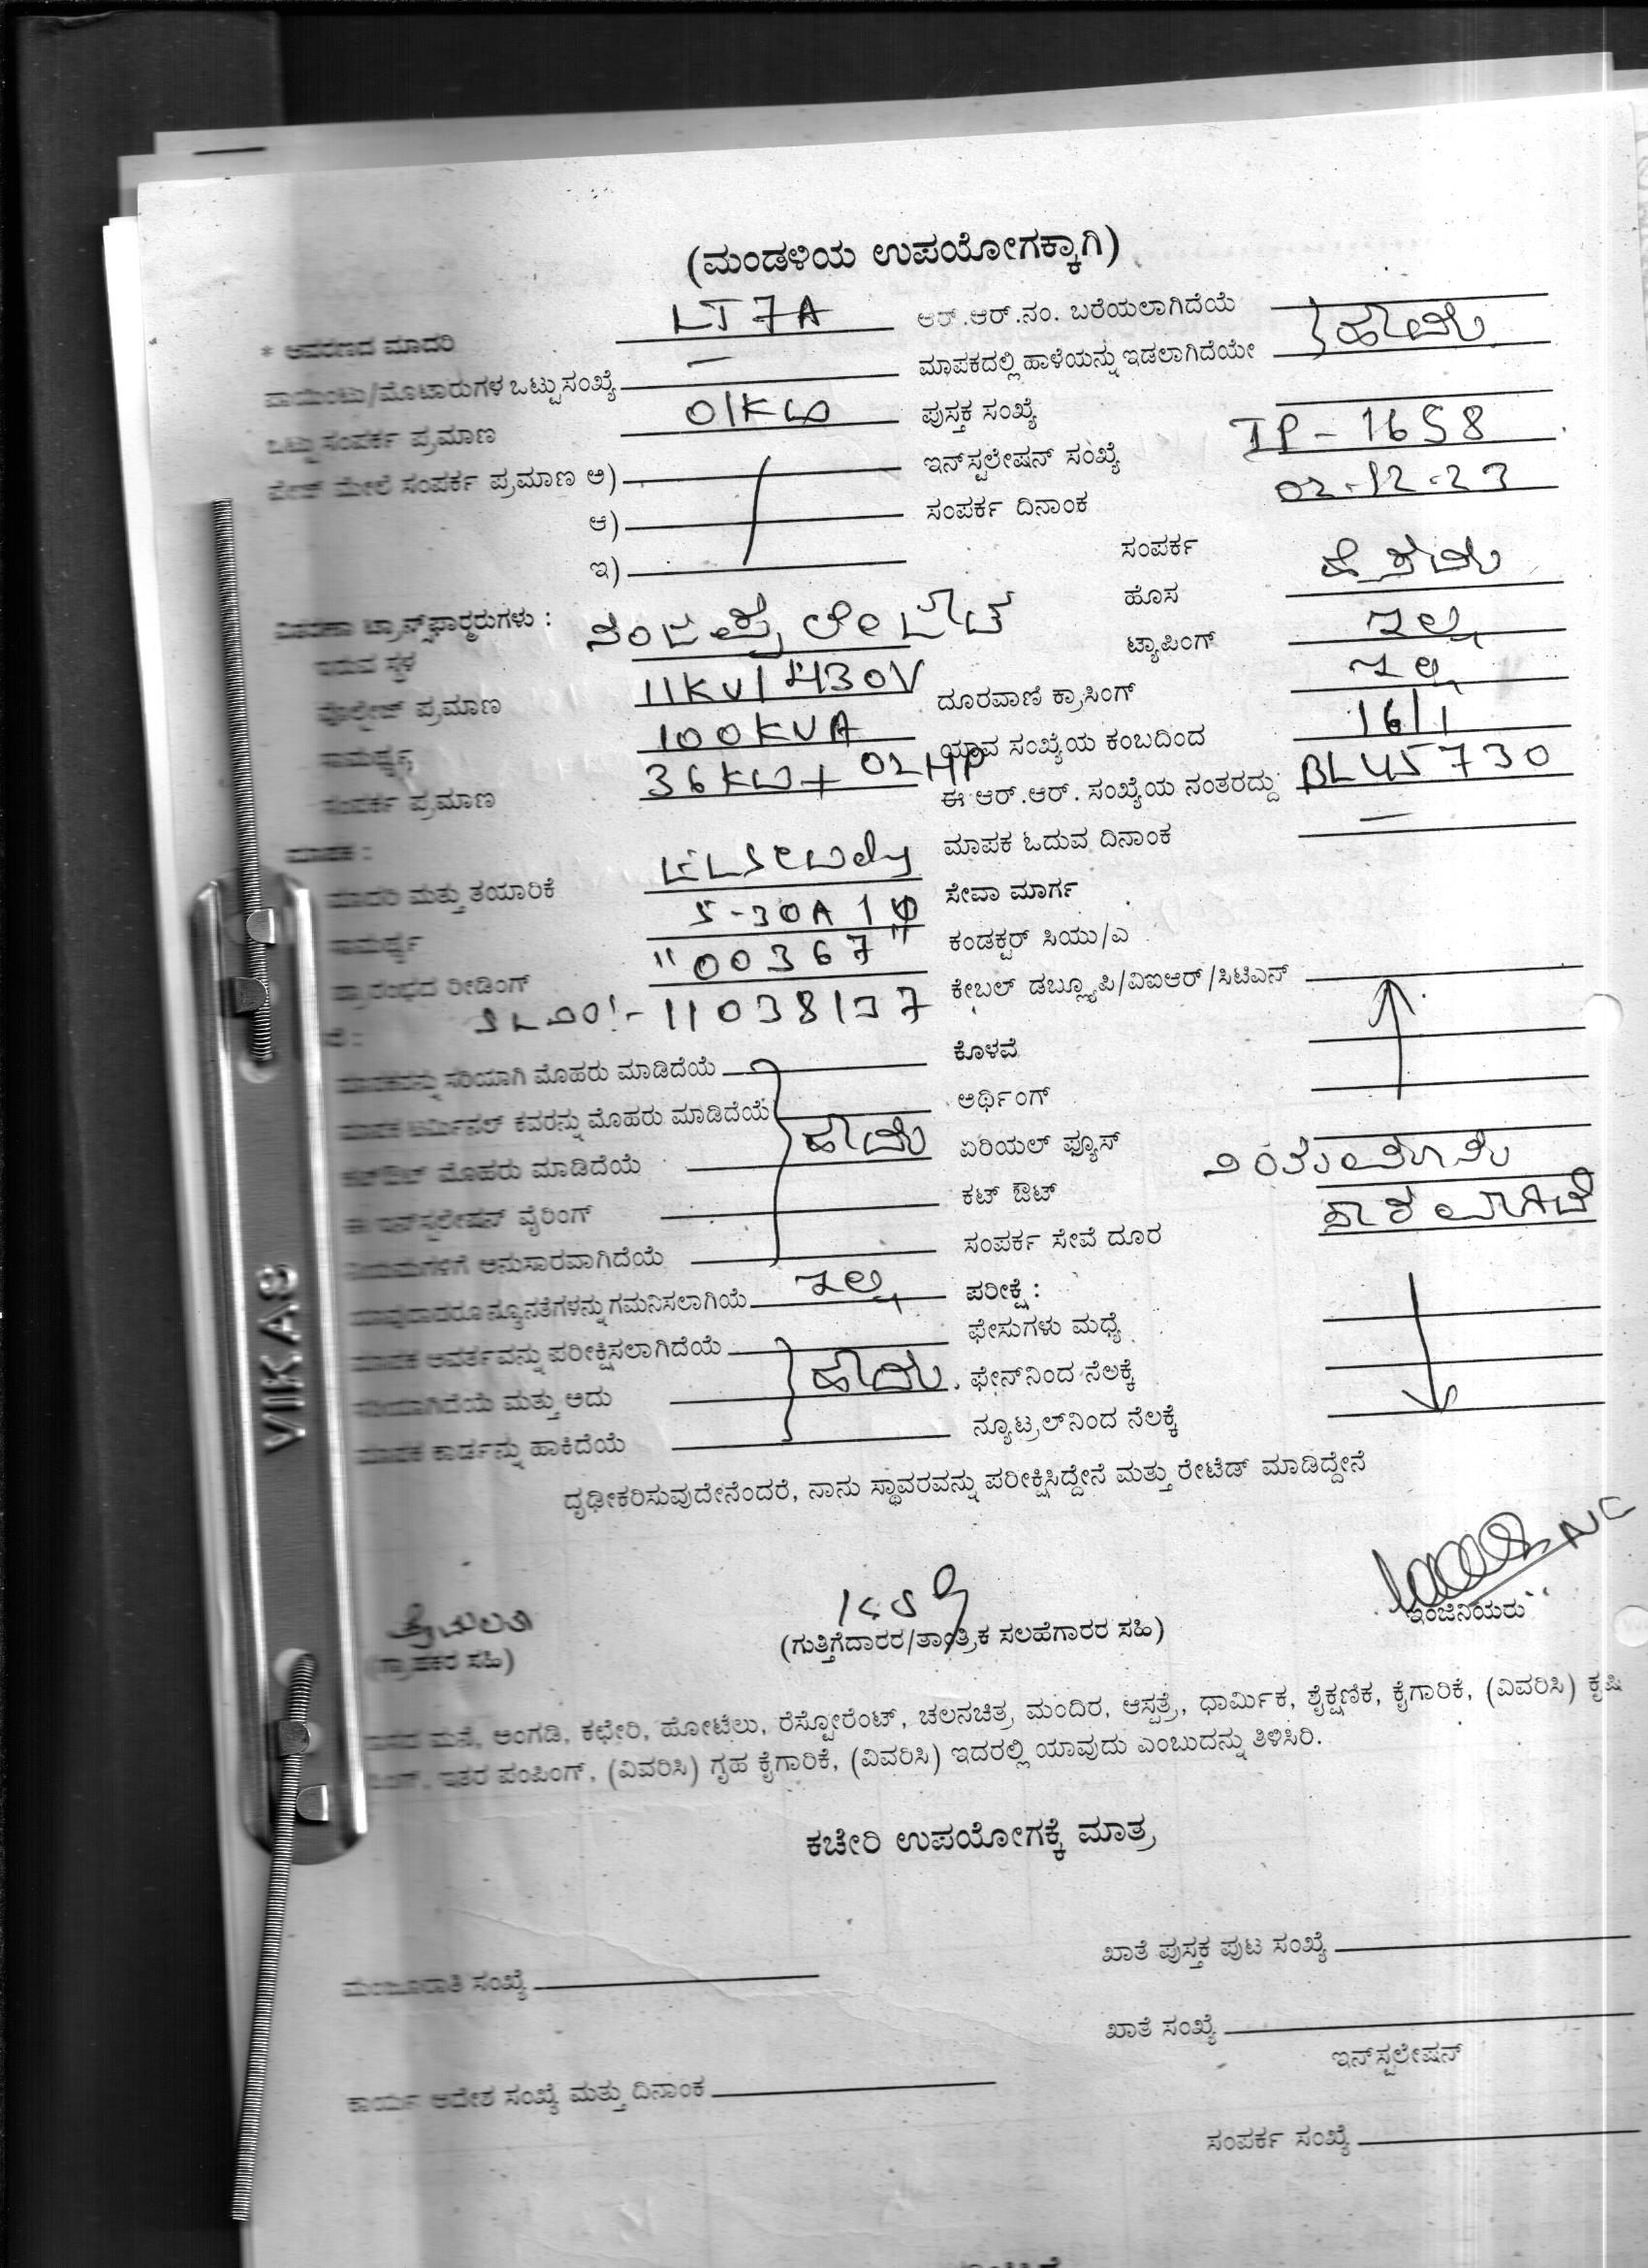 (ಮಂಡಳಿಯ ಉಪಯೋಗಕ್ಕಾಗಿ)
* ಆವರಣದ ಮಾದರಿ LT 7A ಆರ್.ಆರ್.ನಂ. ಬರೆಯಲಾಗಿದೆಯೆ
ಪಾಯಿಂಟು/ಮೊಟಾರುಗಳ ಒಟ್ಟು ಸಂಖ್ಯೆ — ಮಾಪಕದಲ್ಲಿ ಹಾಳೆಯನ್ನು ಇಡಲಾಗಿದೆಯೇ } ಹೌದು
ಒಟ್ಟು ಸಂಪರ್ಕ ಪ್ರಮಾಣ 01KW ಪುಸ್ತಕ ಸಂಖ್ಯೆ
ಮೇಲೆ ಸಂಪರ್ಕ ಪ್ರಮಾಣ ಅ) ಇನ್‌ಸ್ಟಲೇಷನ್ ಸಂಖ್ಯೆ TP-1658
ಆ) ಸಂಪರ್ಕ ದಿನಾಂಕ 02-12-23
ಇ) ಸಂಪರ್ಕ
ವಿತರಣಾ ಟ್ರಾನ್ಸ್‌ಫಾರ್ಮರುಗಳು : ಹೊಸ
ಇರುವ ಸ್ಥಳ ಲೇಔಟ್ ಟ್ಯಾಪಿಂಗ್ ಇಲ್ಲ
ವೋಲ್ಟೇಜ್ ಪ್ರಮಾಣ 11KV/430V ದೂರವಾಣಿ ಕ್ರಾಸಿಂಗ್ ಇಲ್ಲ
ಸಾಮರ್ಥ್ಯ 100KVA ಯಾವ ಸಂಖ್ಯೆಯ ಕಂಬದಿಂದ 16/1
ಸಂಪರ್ಕ ಪ್ರಮಾಣ 36KW+02HP ಈ ಆರ್.ಆರ್. ಸಂಖ್ಯೆಯ ನಂತರದ್ದು BL45730
ಮಾಪಕ : ಮಾಪಕ ಓದುವ ದಿನಾಂಕ —
ಮಾದರಿ ಮತ್ತು ತಯಾರಿಕೆ ELSewedy ಸೇವಾ ಮಾರ್ಗ
ಸಾಮರ್ಥ್ಯ 5-30A 1φ ಕಂಡಕ್ಟರ್ ಸಿಯು/ಎ
ಪ್ರಾರಂಭದ ರೀಡಿಂಗ್ "00367" ಕೇಬಲ್ ಡಬ್ಲ್ಯೂಪಿ/ವಿಐಆರ್/ಸಿಟಿಎಸ್
11038137
ಮಾಪಕವನ್ನು ಸರಿಯಾಗಿ ಮೊಹರು ಮಾಡಿದೆಯೆ ಕೊಳವೆ
ಮಾಪಕ ಟರ್ಮಿನಲ್ ಕವರನ್ನು ಮೊಹರು ಮಾಡಿದೆಯೆ ಅರ್ಥಿಂಗ್
ಕಟ್‌ಔಟ್ ಮೊಹರು ಮಾಡಿದೆಯೆ ಹೌದು ಏರಿಯಲ್ ಫ್ಯೂಸ್
ಈ ಇನ್‌ಸ್ಟಲೇಷನ್ ವೈರಿಂಗ್ ಕಟ್ ಔಟ್
ನಿಯಮಗಳಿಗೆ ಅನುಸಾರವಾಗಿದೆಯೆ ಸಂಪರ್ಕ ಸೇವೆ ದೂರ
ಯಾವುದಾದರೂ ನ್ಯೂನತೆಗಳನ್ನು ಗಮನಿಸಲಾಗಿಯೆ ಇಲ್ಲ ಪರೀಕ್ಷೆ :
ಮಾಪಕ ಆವರ್ತವನ್ನು ಪರೀಕ್ಷಿಸಲಾಗಿದೆಯೆ ಫೇಸುಗಳು ಮಧ್ಯೆ
ಸರಿಯಾಗಿದೆಯೆ ಮತ್ತು ಅದು ಹೌದು ಫೇಸ್‌ನಿಂದ ನೆಲಕ್ಕೆ
ಮಾಪಕ ಕಾರ್ಡನ್ನು ಹಾಕಿದೆಯೆ ನ್ಯೂಟ್ರಲ್‌ನಿಂದ ನೆಲಕ್ಕೆ
ದೃಢೀಕರಿಸುವುದೇನೆಂದರೆ, ನಾನು ಸ್ಥಾವರವನ್ನು ಪರೀಕ್ಷಿಸಿದ್ದೇನೆ ಮತ್ತು ರೇಟೆಡ್ ಮಾಡಿದ್ದೇನೆ
(ಗ್ರಾಹಕರ ಸಹಿ) (ಗುತ್ತಿಗೆದಾರರ/ತಾಂತ್ರಿಕ ಸಲಹೆಗಾರರ ಸಹಿ) ಇಂಜಿನಿಯರು
ಮನೆ, ಅಂಗಡಿ, ಕಛೇರಿ, ಹೋಟೆಲು, ರೆಸ್ಟೋರೆಂಟ್, ಚಲನಚಿತ್ರ ಮಂದಿರ, ಆಸ್ಪತ್ರೆ, ಧಾರ್ಮಿಕ, ಶೈಕ್ಷಣಿಕ, ಕೈಗಾರಿಕೆ, (ವಿವರಿಸಿ) ಕೃಷಿ
ಇತರ ಪಂಪಿಂಗ್, (ವಿವರಿಸಿ) ಗೃಹ ಕೈಗಾರಿಕೆ, (ವಿವರಿಸಿ) ಇದರಲ್ಲಿ ಯಾವುದು ಎಂಬುದನ್ನು ತಿಳಿಸಿರಿ.
ಕಚೇರಿ ಉಪಯೋಗಕ್ಕೆ ಮಾತ್ರ
ಮಂಜೂರಾತಿ ಸಂಖ್ಯೆ ಖಾತೆ ಪುಸ್ತಕ ಪುಟ ಸಂಖ್ಯೆ
ಖಾತೆ ಸಂಖ್ಯೆ
ಇನ್‌ಸ್ಟಲೇಷನ್
ಕಾರ್ಯ ಆದೇಶ ಸಂಖ್ಯೆ ಮತ್ತು ದಿನಾಂಕ
ಸಂಪರ್ಕ ಸಂಖ್ಯೆ
VIKAS